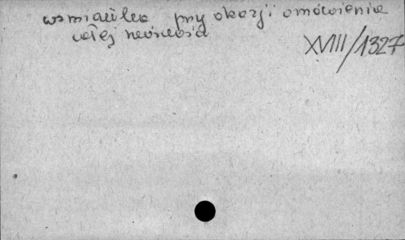 wzmianka przy okazji omówienia
całej
XVIII/1327